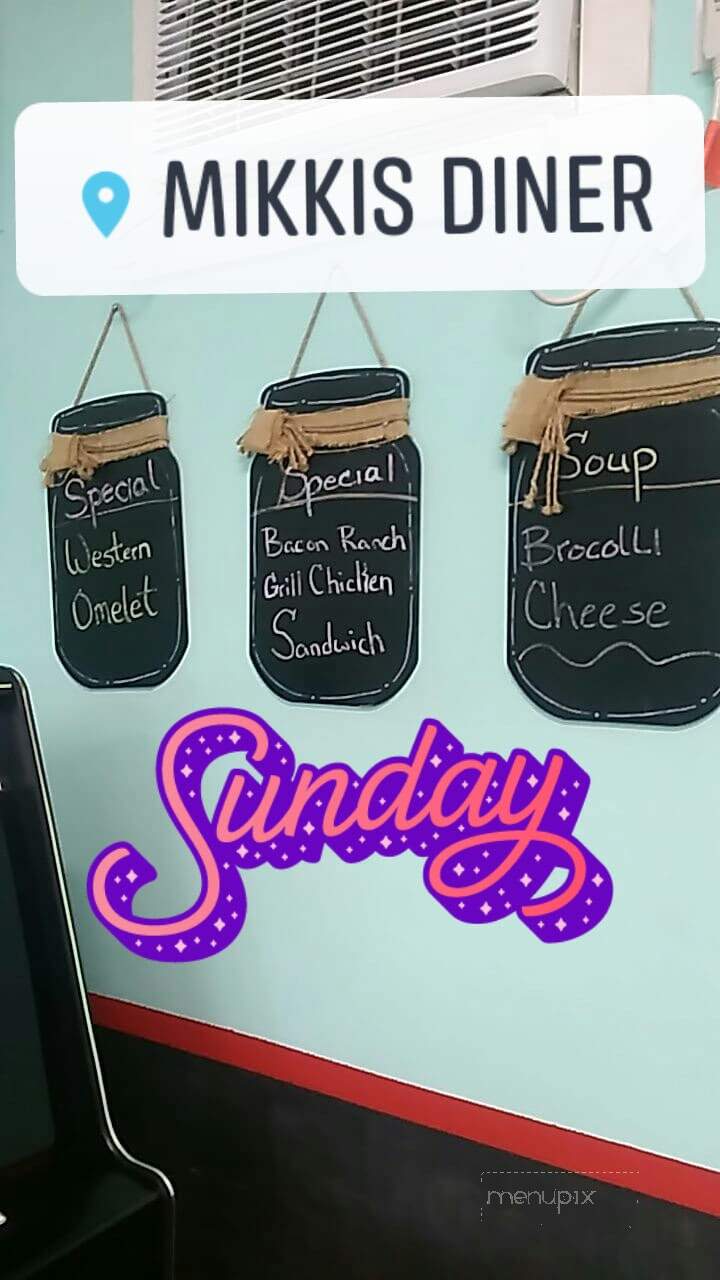 MIKKIS DINER
Special
Western
Omelet
Special
Bacon Ranch
Grill Chicken
Sandwich
Soup
Brocolli
Cheese
Sunday
menupix